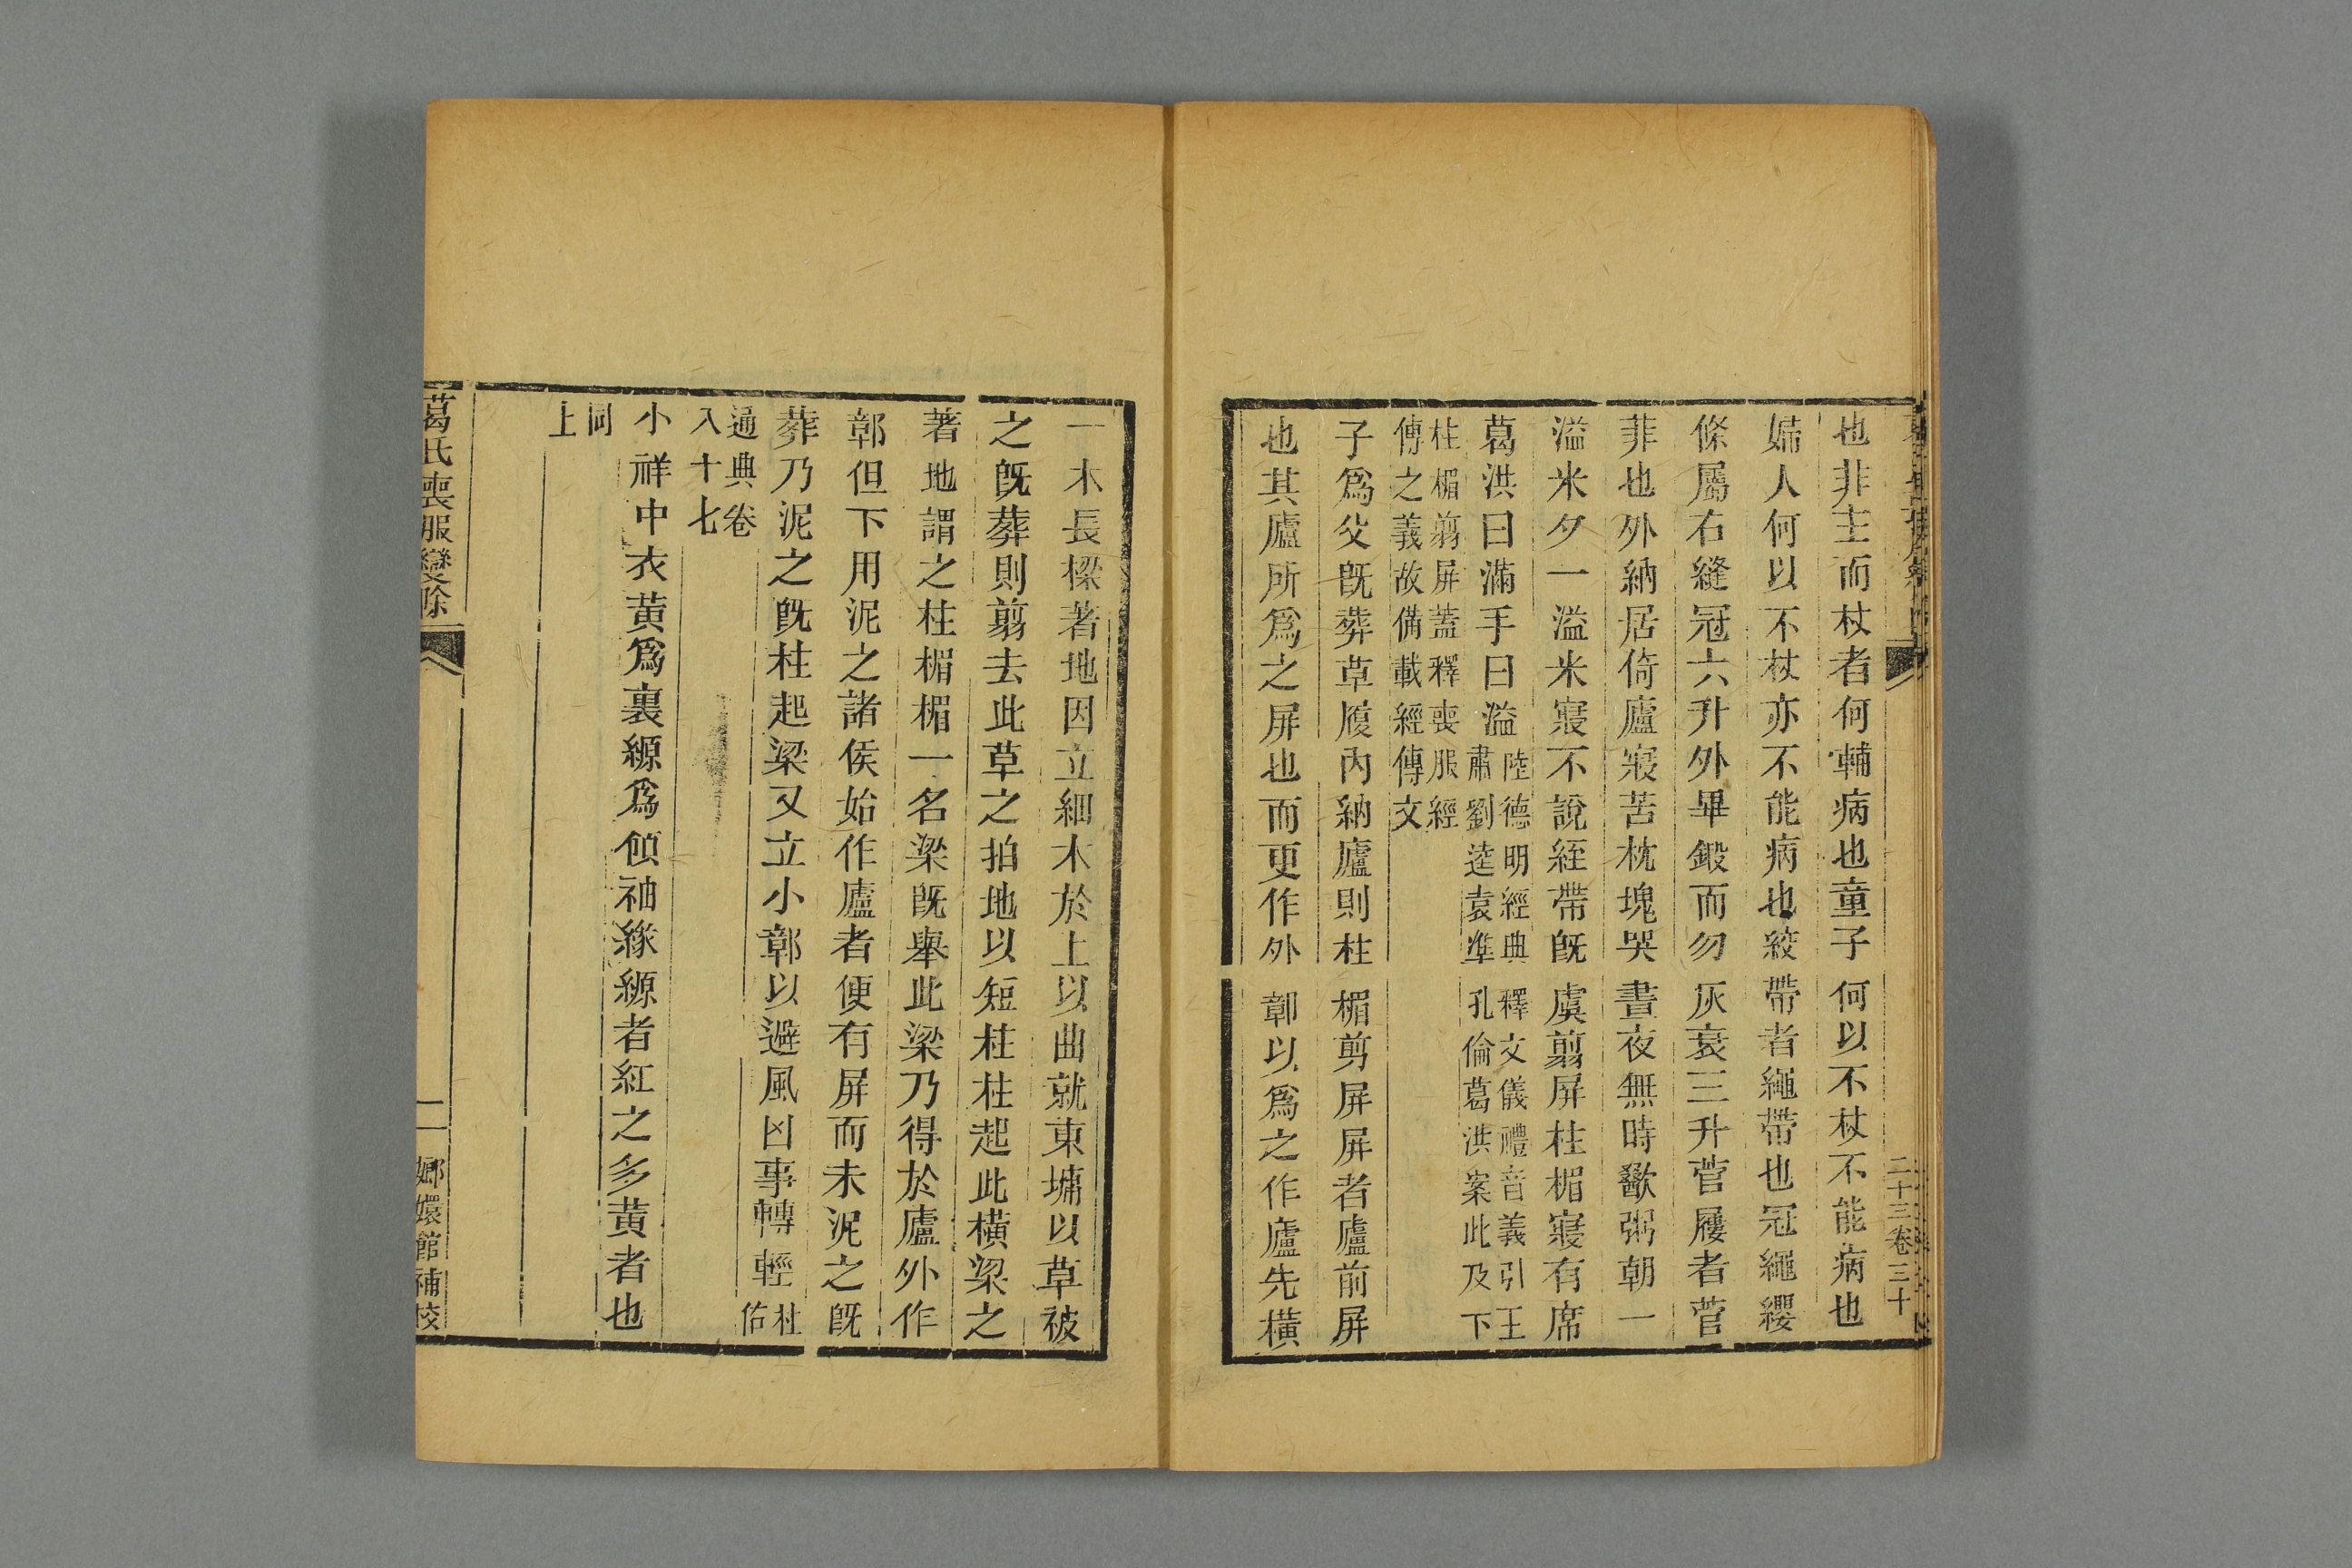 二十三卷三十
也非主而杖者何輔病也童子何以不杖不能病也
婦人何以不杖亦不能病也絞帶者繩帶也冠繩纓
條屬右縫冠六升外畢鍛而勿灰衰三升菅屨者菅
菲也外納居倚廬寢苫枕塊哭晝夜無時歠粥朝一
溢米夕一溢米寢不說絰帶旣虞翦屏柱楣寢有席
葛洪曰滿手曰溢
陸德明經典釋文儀禮音義引王
肅劉逵袁準孔倫葛洪案此及下
柱楣翦屏蓋釋喪服經
傳之義故備載經傳文
子爲父旣葬草履內納廬則柱楣剪屏屏者廬前屏
也其廬所爲之屏也而更作外鄣以爲之作廬先橫
一木長樑著地因立細木於上以曲就東墉以草被
之旣葬則翦去此草之拍地以短柱柱起此橫梁之
著地謂之柱楣楣一名梁旣舉此梁乃得於廬外作
鄣但下用泥之諸侯始作廬者便有屏而未泥之旣
葬乃泥之旣柱起梁又立小鄣以避風凶事轉輕
杜
佑
通典卷
八十七
小祥中衣黃爲裏縓爲領袖緣縓者紅之多黃者也
同
上
葛氏喪服變除
二
嫏嬛館補校